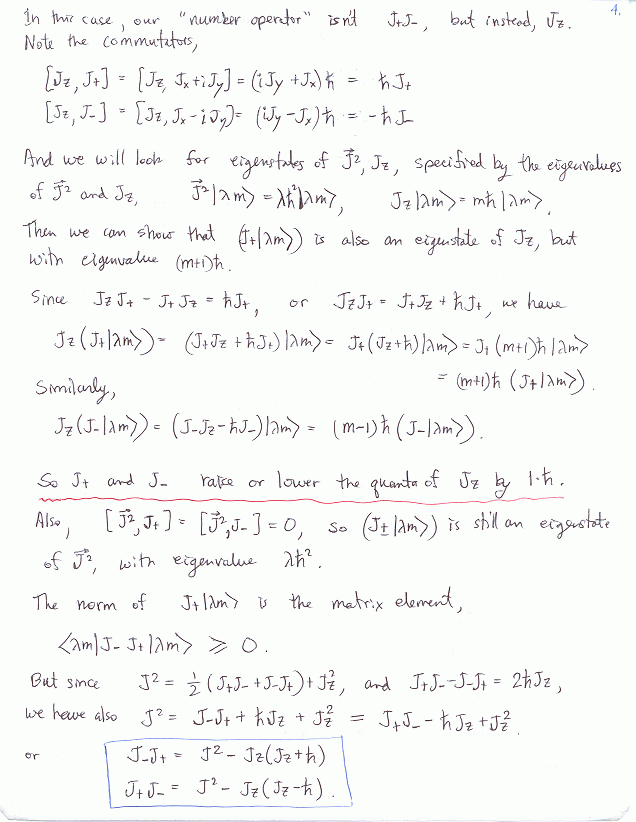 4.
In this case, our "number operator" isn't J₊J₋, but instead, J_z.
Note the commutators,
[J_z, J₊] = [J_z, J_x+iJ_y] = (iJ_y + J_x)ħ = ħJ₊
[J_z, J₋] = [J_z, J_x-iJ_y] = (iJ_y - J_x)ħ = -ħJ₋
And we will look for eigenstates of J⃗², J_z, specified by the eigenvalues
of J⃗² and J_z, J⃗²|λm⟩ = λħ²|λm⟩, J_z|λm⟩ = mħ|λm⟩.
Then we can show that (J₊|λm⟩) is also an eigenstate of J_z, but
with eigenvalue (m+1)ħ.
Since J_zJ₊ - J₊J_z = ħJ₊, or J_zJ₊ = J₊J_z + ħJ₊, we have
J_z(J₊|λm⟩) = (J₊J_z + ħJ₊)|λm⟩ = J₊(J_z+ħ)|λm⟩ = J₊(m+1)ħ|λm⟩
= (m+1)ħ (J₊|λm⟩).
Similarly,
J_z(J₋|λm⟩) = (J₋J_z - ħJ₋)|λm⟩ = (m-1)ħ (J₋|λm⟩).
So J₊ and J₋ raise or lower the quanta of J_z by 1·ħ.
Also, [J⃗², J₊] = [J⃗², J₋] = 0, so (J±|λm⟩) is still an eigenstate
of J⃗², with eigenvalue λħ².
The norm of J₊|λm⟩ is the matrix element,
⟨λm|J₋J₊|λm⟩ ≥ 0.
But since J² = ½(J₊J₋ + J₋J₊) + J_z², and J₊J₋ - J₋J₊ = 2ħJ_z,
we have also J² = J₋J₊ + ħJ_z + J_z² = J₊J₋ - ħJ_z + J_z².
or J₋J₊ = J² - J_z(J_z+ħ)
J₊J₋ = J² - J_z(J_z-ħ).